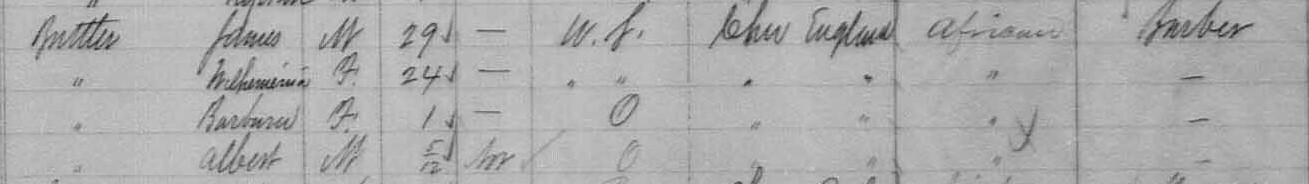 Buttler James M 29 — W. I. Chu England African Barber
" Wilhemenia F. 24 — " " " " " —
" Barbura F. 1 — O " " " —
" Albert M 5/12 Nov O " " " —